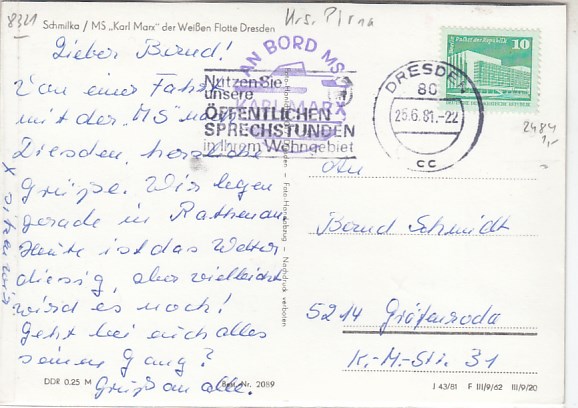 8321
Krs. Pirna
Schmilka / MS „Karl Marx" der Weißen Flotte Dresden
Lieber Bernd!
Von einer Fahrt
mit der „MS" nach
Dresden, herzliche
Grüße. Wir liegen
gerade in Rathen an.
Heute ist das Wetter
diesig, aber vielleicht
wird es noch!
Geht bei euch alles
seinen Gang?
Grüß an alle.
DDR 0.25 M
Best.-Nr. 2089
AN BORD MS
KARL MARX
Nutzen Sie
unsere
ÖFFENTLICHEN
SPRECHSTUNDEN
in Ihrem Wohngebiet
DRESDEN
80
25.6.81.-22
cc
Palast der Republik
10
2484
1,-
An
Bernd Schmidt
5214 Gräfenroda
K.-M-Str. 31
Nachdruck verboten
J 43/81 F III/9/62 III/9/20